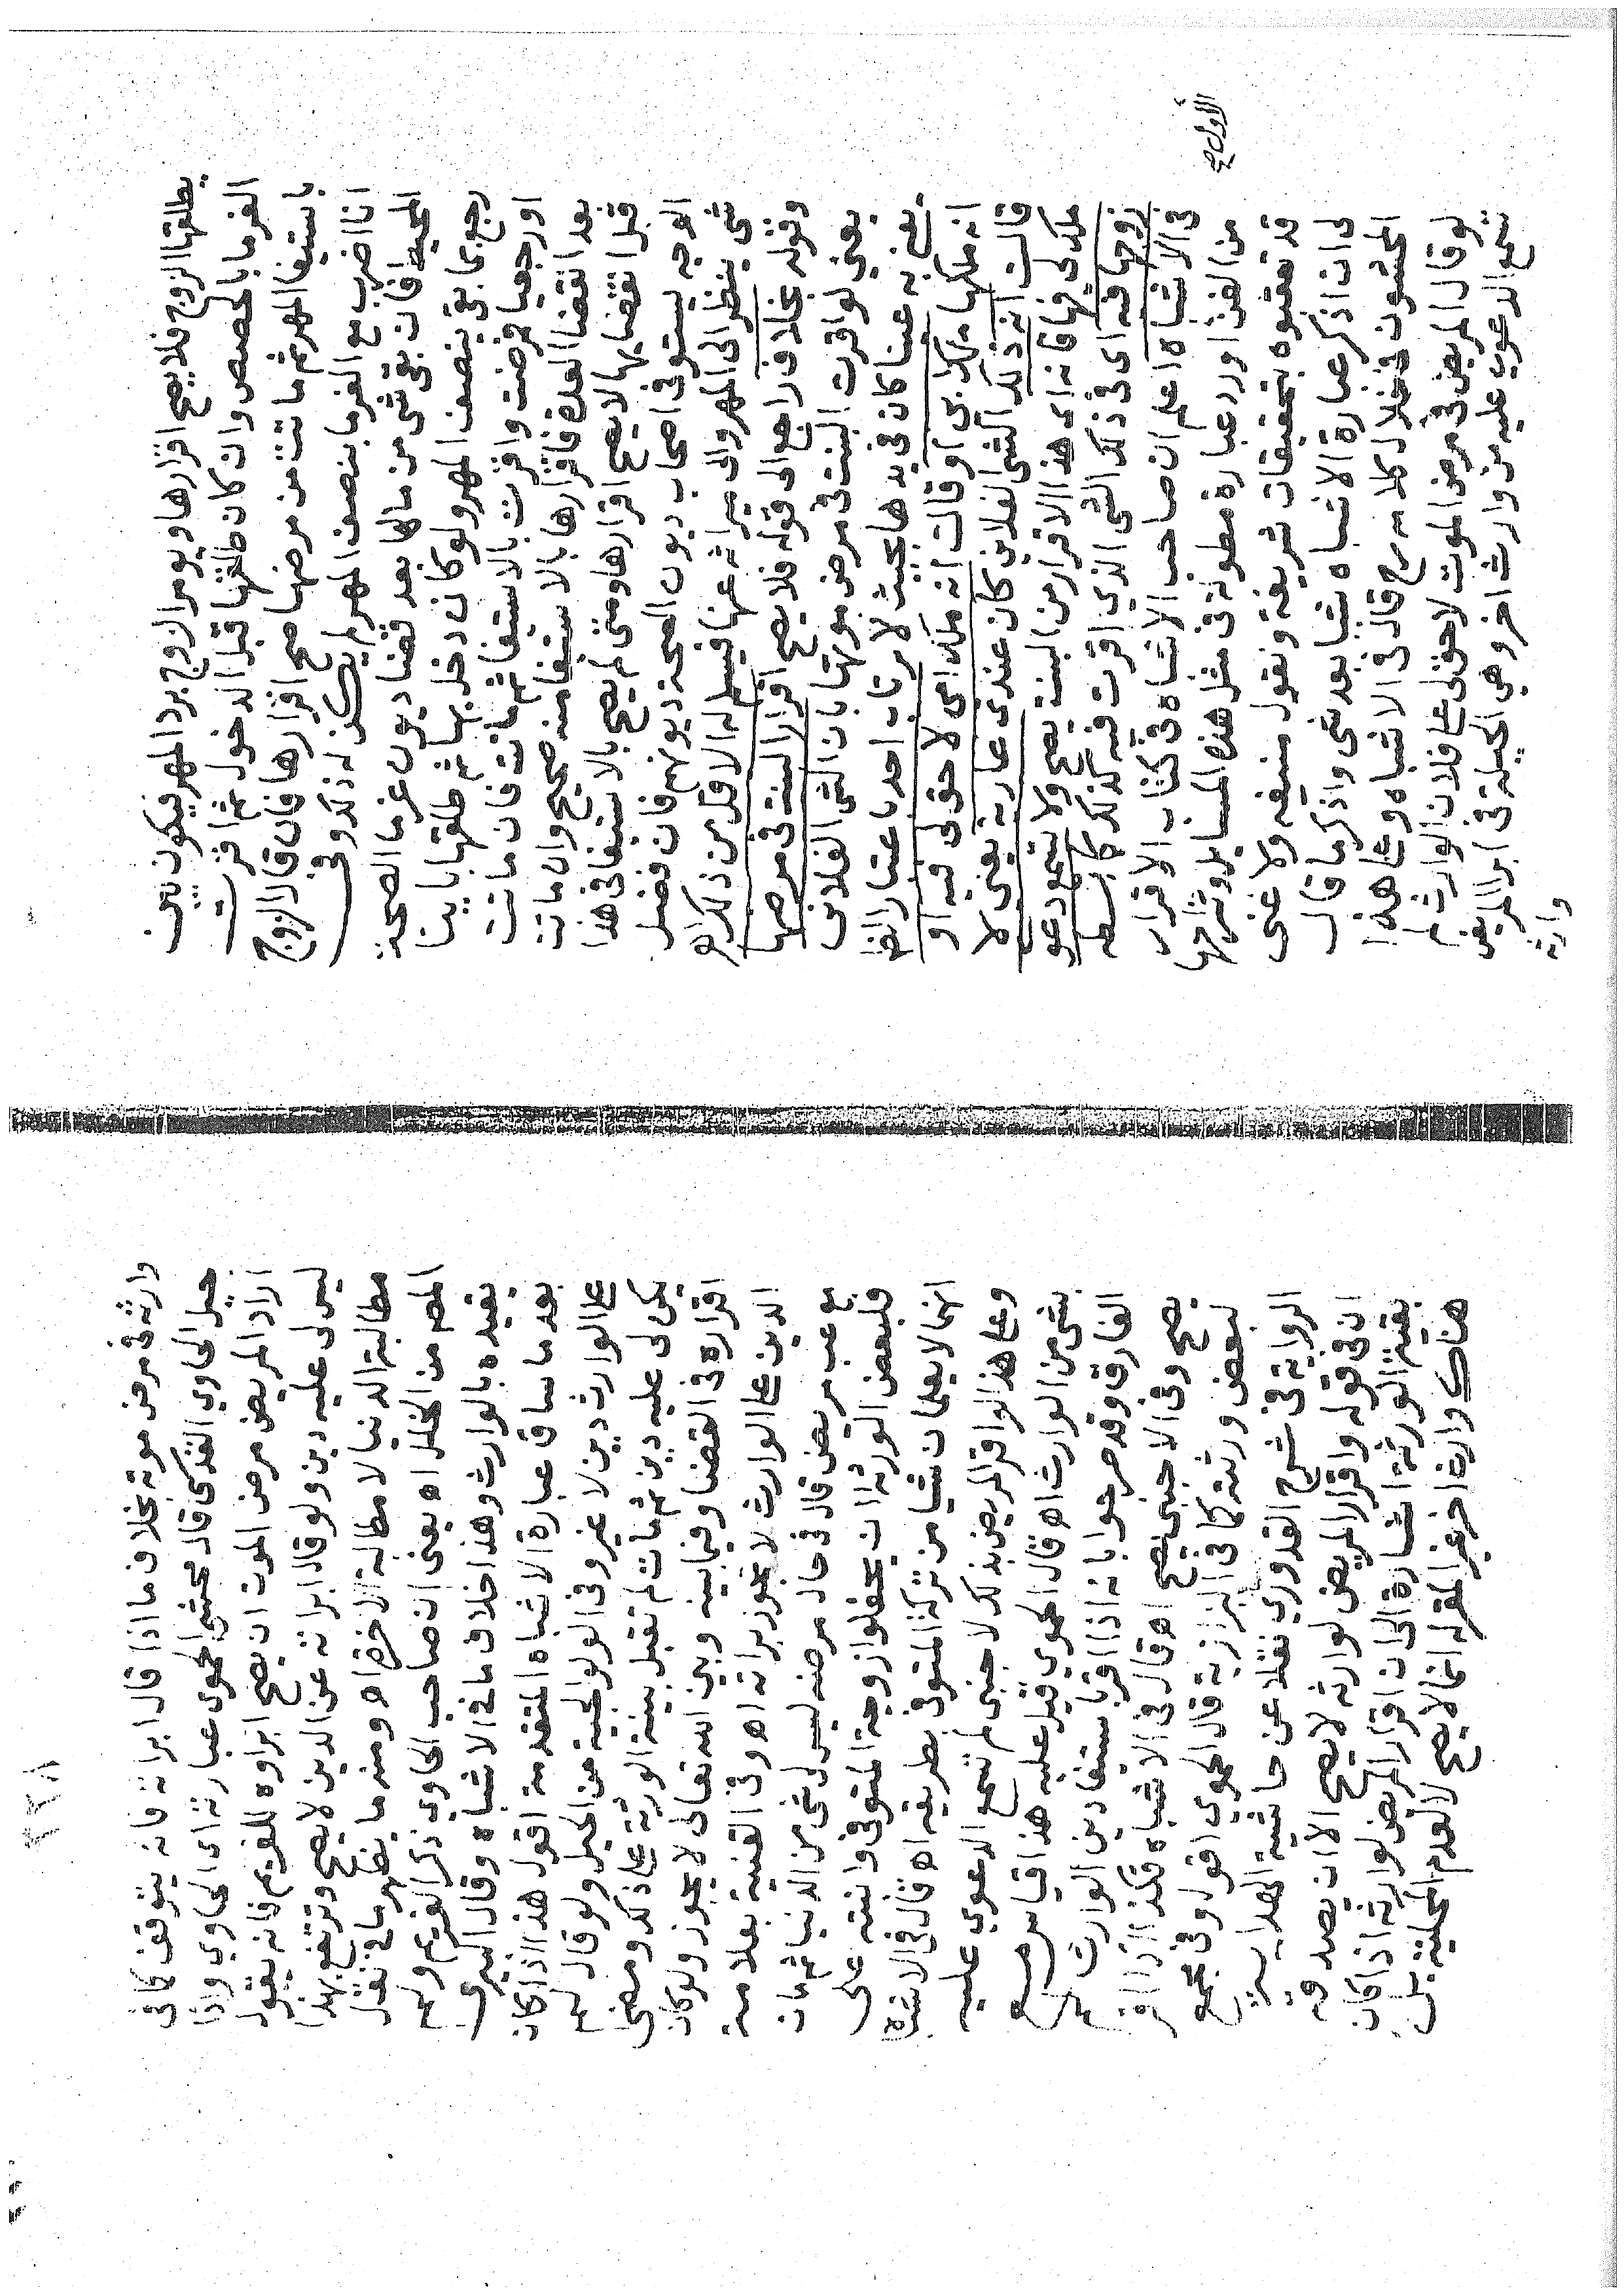 يطلقها الزوج فلا يصح اقرارها ويومر الزوج برد المهر فيكون بين
الغرما بالحصص وان كان طلقها قبل الدخول ثم اقرت
باستيفا المهر ثم ماتت من مرضها صح اقرارها فان قال الزوج
انا اضرب مع الغرما بنصف المهر لم يكن له ذلك وفي
المحيط فان بقى شى من مالها بعد قضا ديون غرما الصحة
رجع بما بقى بنصف المهر ولو كان دخل بها ثم طلقها باينا
او رجعيا فمرضت واقرت بالاستيفا ثم ماتت فان ماتت
بعد انقضا العدة فاقرارها بالاستيفا منه صحيح وان ماتت
قبل انقضايها لا يصح اقرارها ومتى لم يصح بالاستيفا في هذا
الوجه يستوفى اصحاب ديون الصحة ديونهم فان فضل
شى ينظر الى المهر والى ميراثه عنها فيسلم له الاقل من ذلك اهـ
وقوله بخلاف راجع الى قوله فلا يصح اقرار البنت في مرضها
يعني لو اقرت البنت في مرض موتها بان الشى الفلاني
يعني به عينا كان في يدها بحيث لا يرتاب احد باعتبار انها
انه ملكها ملك ابى او قالت انه ملك امى لا حق لى فيه او
قالت انه ذلك الشى الفلاني كان عندى عارية يعنى لا
ملك لى فيها فانه اى هذا الاقرار من البنت يصح ولا تسمع دعوى
زوجها فيه اى في ذلك الشى الذي اقرت فيه كذلك كما بسطه
في الاشباه اعلم ان صاحب الاشباه في كتاب الاقرار
الاول صح
من الفن اورد عبارة مطولة في مثل هذه المسايل وشراحها
قد تعقبوه بتحقيقات شريفة ونقول منيفه ولا غنى
لى ان اذكر عبارة الاشباه شيا بعد شى واذكر ما قال
المحشون في خلال كلامه رح قال في الاشباه وعلى هذا
لو قال المريض في مرض الموت لا حق لى على فلان الوارث لم
تسمع الدعوى عليه من وارث اخر وهي الحيلة في ابرا المريض
وارثه
وارثه في مرض موته بخلاف ما اذا قال ابراته فانه يتوقف كما في
حيل الحاوي القدسي قال محشى الحموى عبارته اى الحاوي واذا
اراد المريض مرض الموت ان يصح ابراوه للغريم فانه يقول
ليس لى عليه دين ولو قال ابراته عن الدين لا يصح وترتفع بهذا
مطالبة الدنيا لا مطالبة الاخرة اهـ ومنه ما يظهر ما في نقل
المص من الخلل اهـ يعنى ان صاحب الحاوى ذكر الغريم ولم
يقيده بالوارث وهذا خلاف ما في الاشباه وقال البيرى
بعد ما ساق عبارة الاشباه المتقدمة اقول هذا اذا كان
على الوارث دين لا غير وفى الولوالجية من الحيل ولو قال لم
يكن لى عليه دين ثم مات لم تقبل بينة الورثة على ذلك ومضى
اقراره في القضا وفيما بينه وبين الله تعالى لا يجوز ولو كان
الدين على الوارث لا تجوز براته اهـ وفى القنية بعلامة
مع عب مريض قال في حال مرضه ليس لى شى من الدنيا ثم مات
فلبعض الورثة ان يحلفوا زوجة المتوفى وابنته على
انهما لا يعلمان شيا من تركة المتوفى بطريقه اهـ قال في الاشباه
وعلى هذا لو اقر المريض بذلك لاجنبى لم تسمع الدعوى عليه
بشى من الوارث اهـ قال الحموي قيل عليه هذا قياس مع
الفارق وقد صرحوا بانه اذا اقر باستيفا دين الوارث لم
يصح وفى الاجنبى يصح اهـ قال في الاشباه فكذا اذا اقر
لبعض ورثته كما في البزازية قال الحموي اقول وفى مجمع
الرواية في شرح القدورى نقلا عن حاشية الهداية
ان في قوله واقرار المريض لوارثه لا يصح الا ان يصدقه
بقية الورثة اشارة الى ان اقرار المريض لوارثه اذا كان
هناك وارث اخر غير المقر له انما لا يصح لا لعدم المحلية بل